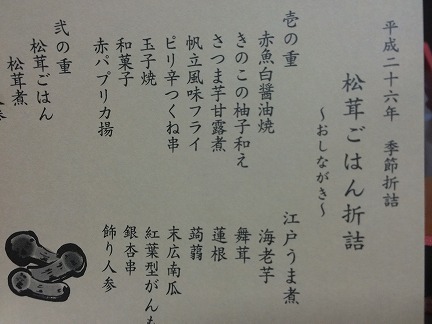 平成二十六年 季節折詰
松茸ごはん折詰
〜おしながき〜
壱の重
赤魚白醤油焼
きのこの柚子和え
さつま芋甘露煮
帆立風味フライ
ピリ辛つくね串
玉子焼
和菓子
赤パプリカ揚
江戸うま煮
海老芋
舞茸
蓮根
蒟蒻
末広南瓜
紅葉型がんも
銀杏串
飾り人参
弐の重
松茸ごはん
松茸煮
人参